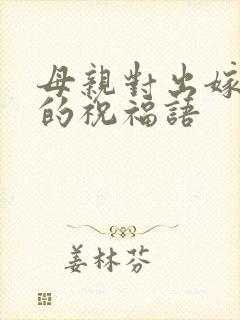 母親對出嫁
的祝福語
姜林芬